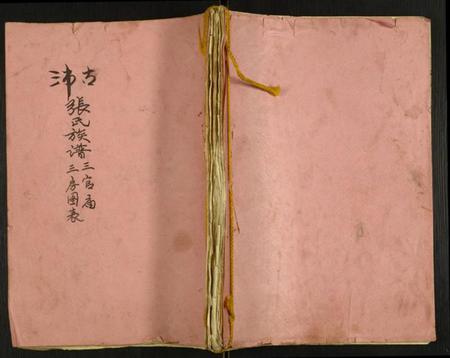 古沛
張氏族譜三官庙
三房图表